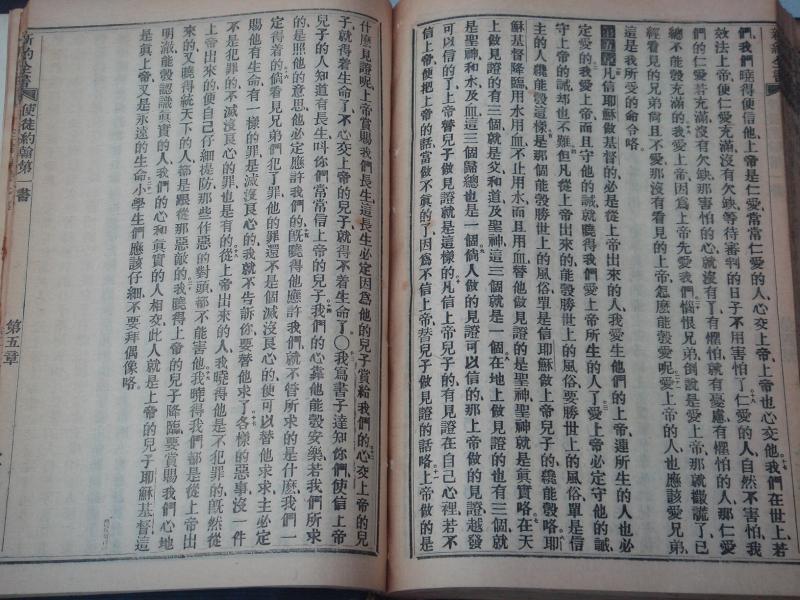 新約全書
們、我們曉得便信他、上帝是仁愛、常常仁愛的人、心交上帝、上帝也心交他、我們在世上、若
效法上帝、便仁愛充滿沒有欠缺、等待審判的日子、不用害怕了、仁愛的人自然不害怕、我
們的仁愛若充滿沒有欠缺、那害怕的心就沒有了、有懼怕就有憂慮、有懼怕的人、那仁愛
總不能彀充滿的、我愛上帝、因爲上帝先愛我們、惱恨兄弟、倒說是愛上帝、那就撒謊了、已
經看見的兄弟、尚且不愛、那沒有看見的上帝、怎麽能彀愛呢、愛上帝的人、也應該愛兄弟、
這是我所受的命令咯。
第五章 凡信耶穌做基督的、必是從上帝出來的人、我愛生他們的上帝、連所生的人也必
定愛的、我愛上帝、而且守他的誡、就曉得我們愛上帝所生的人了、愛上帝必定守他的誡、
守上帝的誡、却也不難、但凡從上帝出來的、能彀勝世上的風俗、要勝世上的風俗、單是信
主的人纔能彀這樣、是那個能彀勝世上的風俗、單是信耶穌做上帝兒子的、纔能彀咯、耶
穌基督降臨、用水用血、不止用水、而且用血、替他做見證的是聖神、聖神就是眞實咯、在天
上做見證的有三個、就是父和道及聖神、這三個就是一個、在地上做見證的也有三個、就
是聖神和水及血、這三個歸總也是一個、倘人做的見證可以信的、那上帝做的見證越發
可以信的了、上帝替兒子做見證、就是這樣的、凡信上帝兒子的、有見證在自己心裡、若不
信上帝、便把上帝的話當做不眞的了、因爲不信上帝替兒子做見證的話咯、上帝做的是
什麽見證呢、上帝賞賜我們長生、這長生必定因爲他的兒子賞給我們的、心交上帝的兒
子、就得着生命了、不心交上帝的兒子、就得不着生命了、○我寫書子達知你們、使信上帝
兒子的人、知道有長生、叫你們常常信上帝的兒子、我們的心靠他能彀安樂、若我們所求
的是照他的意思、他必定應許我們的、旣曉得他應許我們、就不管所求的是什麽、我們一
定得着的、倘看見兄弟們犯了罪、他的罪還不是個滅沒良心的、便可以替他求、求主必定
賜他有生命、有一樣的罪是滅沒良心的、我就不告訴你要替他求了、各樣的惡事、沒一件
不是犯罪的、不滅沒良心的罪也是有的、從上帝出來的人、我曉得他是不犯罪的、旣然從
上帝出來的、便自己仔細提防、那些作惡的對頭、都不能害他、我曉得我們都是從上帝出
來的、又曉得統天下的人、都是跟從那惡敵的、我曉得上帝的兒子降臨、要賞賜我們心地
明澈、能彀認識眞實的人、我們的心和眞實的人相交、此人就是上帝的兒子耶穌基督、這
是眞上帝、又是永遠的生命、小學生們應該仔細不要拜偶像咯。
新約全書 使徒約翰第一書
第五章